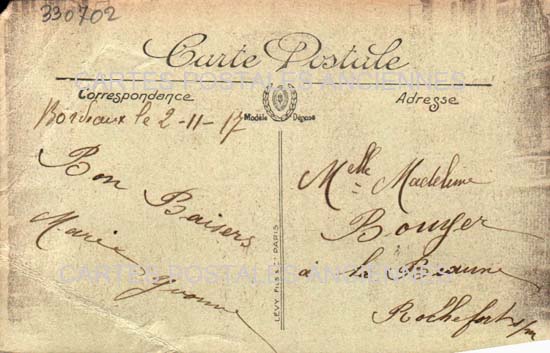 330702
Carte Postale
CARTES POSTALES ANCIENNES
Correspondance
Adresse
Modèle Déposé
Bordeaux le 2-11-17
Bon
Baisers
Marie
Yvonne
LÉVY FILS & Cie PARIS
Melle Madeleine
Bouyer
à la Beaune
Rochefort s/m
CARTES POSTALES ANCIENNES